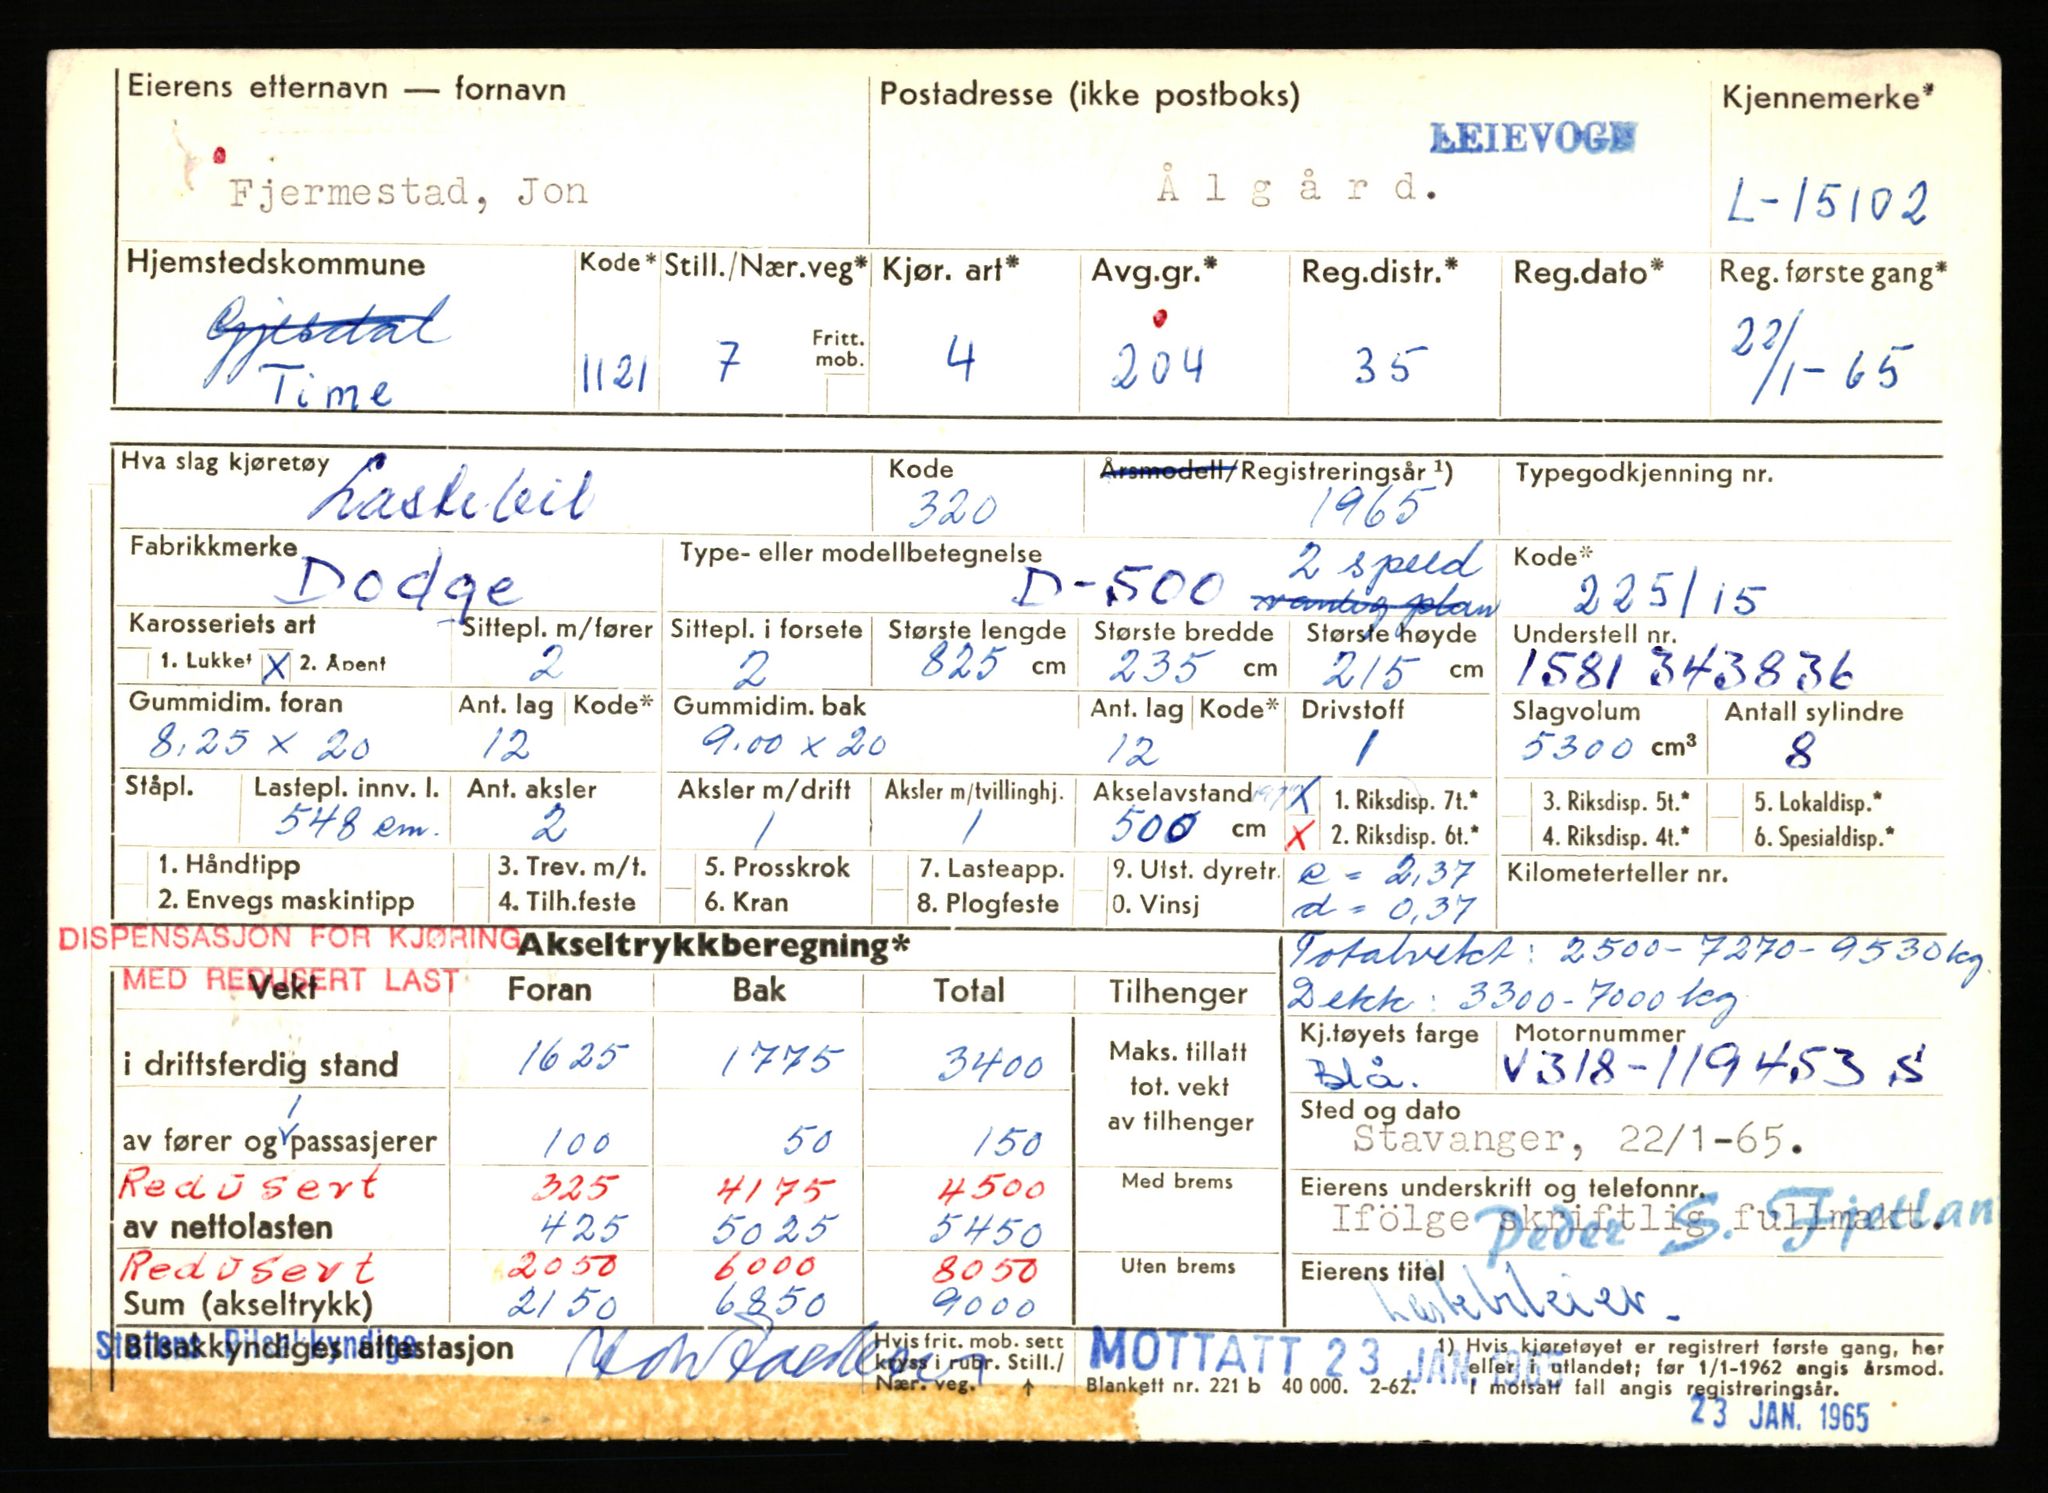 Eierens etternavn — fornavn Postadresse (ikke postboks) Kjennemerke*
LEIEVOGN
Fjermestad, Jon Ålgård. L-15102
Hjemstedskommune Kode* Still./Nær.veg* Kjør. art* Avg.gr.* Reg.distr.* Reg.dato* Reg. første gang*
Gjesdal
Time 1121 7 Fritt. mob. 4 204 35 22/1-65
Hva slag kjøretøy Kode Årsmodell/Registreringsår ¹) Typegodkjenning nr.
Lastebil 320 1965
Fabrikkmerke Type- eller modellbetegnelse Kode*
Dodge D-500 2 speed vanlig plan 225/15
Karosseriets art Sittepl. m/fører Sittepl. i forsete Største lengde Største bredde Største høyde Understell nr.
1. Lukket X 2. Åpent 2 2 825 cm 235 cm 215 cm 1581 343836
Gummidim. foran Ant. lag Kode* Gummidim. bak Ant. lag Kode* Drivstoff Slagvolum Antall sylindre
8.25 x 20 12 9.00 x 20 12 1 5300 cm³ 8
Ståpl. Lastepl. innv. l. Ant. aksler Aksler m/drift Aksler m/tvillinghj. Akselavstand X 1. Riksdisp. 7t.* 3. Riksdisp. 5t.* 5. Lokaldisp.*
548 cm. 2 1 1 500 cm X 2. Riksdisp. 6t.* 4. Riksdisp. 4t.* 6. Spesialdisp.*
1. Håndtipp 3. Trev. m/t. 5. Prosskrok 7. Lasteapp. 9. Utst. dyretr. e = 2,37 Kilometerteller nr.
2. Envegs maskintipp 4. Tilh.feste 6. Kran 8. Plogfeste 0. Vinsj d = 0,37
DISPENSASJON FOR KJØRING Akseltrykkberegning* Totalvekt: 2500-7270-9530 kg.
MED REDUSERT LAST
Vekt Foran Bak Total Tilhenger Dekk: 3300-7000 kg
Kj.tøyets farge Motornummer
i driftsferdig stand 1625 1775 3400 Maks. tillatt tot. vekt av tilhenger Blå. V318-119453 S
Sted og dato
av fører og 1 passasjerer 100 50 150 Stavanger, 22/1-65.
Redusert 325 4175 4500 Med brems Eierens underskrift og telefonnr.
av nettolasten 425 5025 5450 Ifölge skriftlig fullmakt.
Peder S. Fjetlan
Redusert 2050 6000 8050 Uten brems Eierens titel
Sum (akseltrykk) 2150 6850 9000 Lastebileier.
Statens Bilsakkyndige
Bilsakkyndiges attestasjon Hvis frit. mob. sett kryss i rubr. Still./ Nær. veg. ↑ MOTTATT 23 JAN. 1965
1) Hvis kjøretøyet er registrert første gang, her
eller i utlandet; før 1/1-1962 angis årsmod.
Blankett nr. 221 b 40 000. 2-62. I motsatt fall angis registreringsår.
23 JAN. 1965